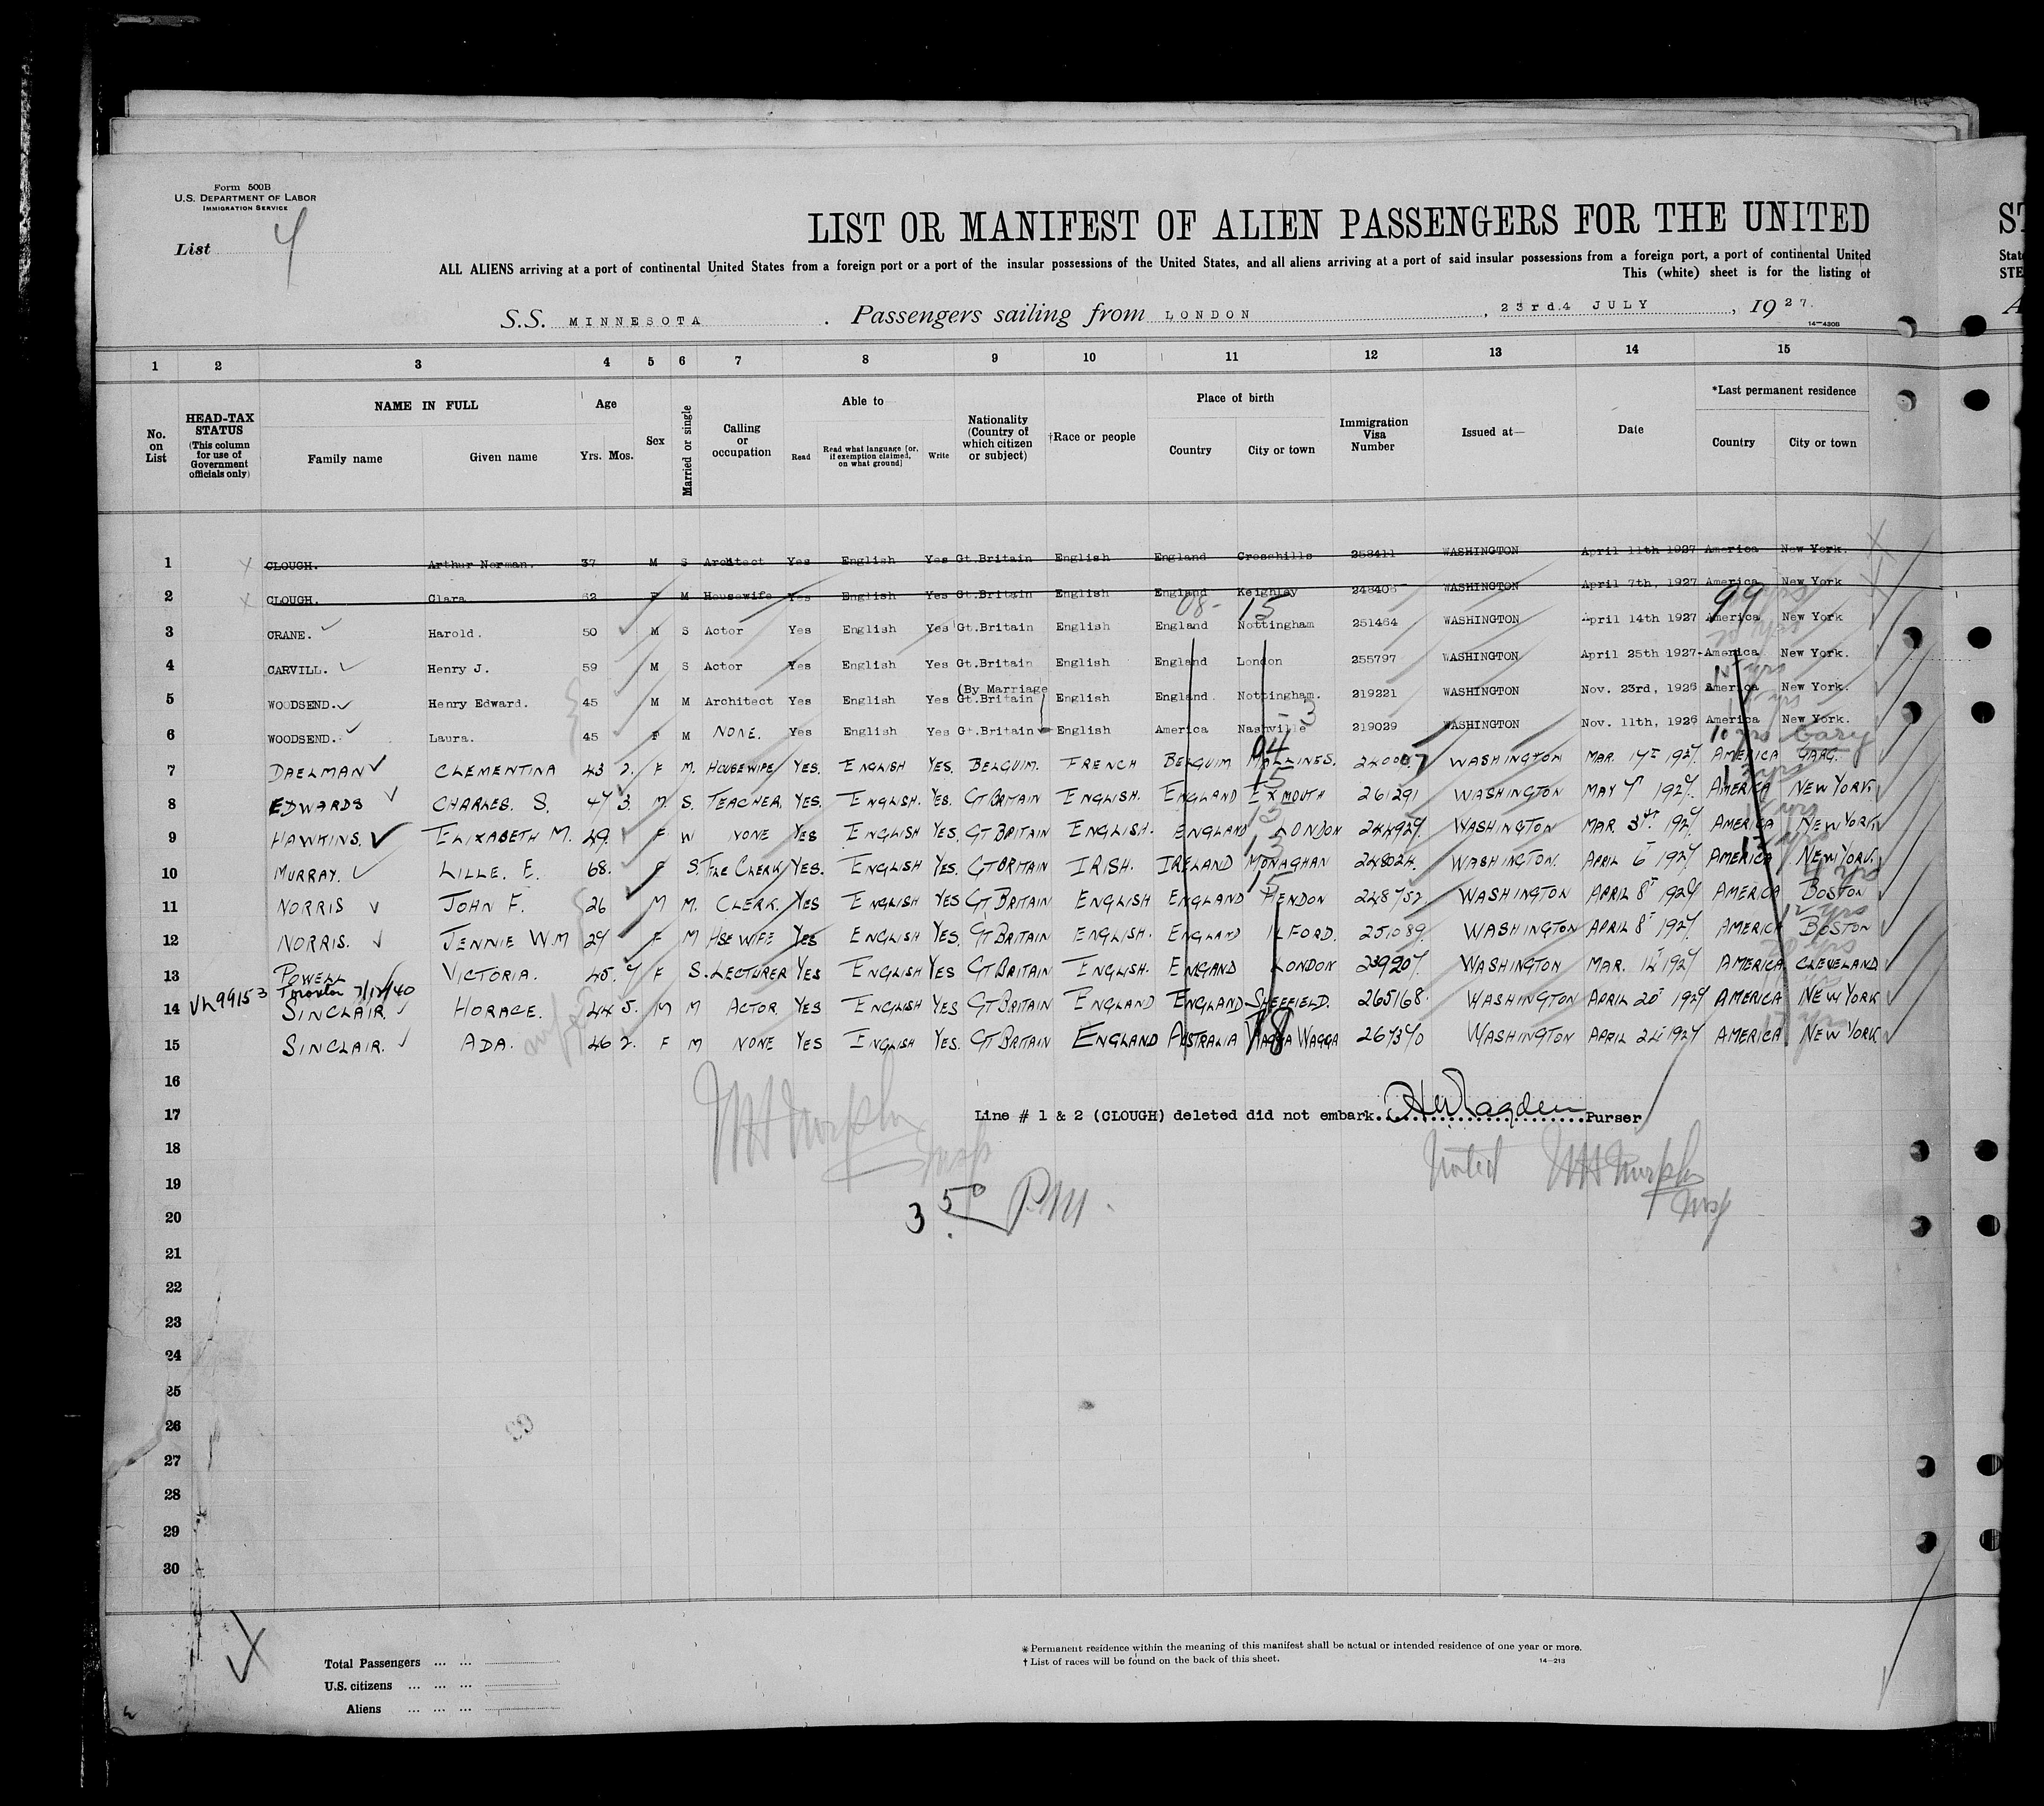 Form 500B
U.S. DEPARTMENT OF LABOR
IMMIGRATION SERVICE
List 4
LIST OR MANIFEST OF ALIEN PASSENGERS FOR THE UNITED
ST
ALL ALIENS arriving at a port of continental United States from a foreign port or a port of the insular possessions of the United States, and all aliens arriving at a port of said insular possessions from a foreign port, a port of continental United
State
This (white) sheet is for the listing of
STE
S.S. MINNESOTA. Passengers sailing from LONDON, 23rd.4 JULY, 1927.
A
14—430B
1 2 3 4 5 6 7 8 9 10 11 12 13 14 15
No. on List
HEAD-TAX STATUS (This column for use of Government officials only)
NAME IN FULL
Family name Given name
Age
Yrs. Mos.
Sex
Married or single
Calling or occupation
Able to
Read Read what language [or, if exemption claimed, on what ground] Write
Nationality (Country of which citizen or subject)
†Race or people
Place of birth
Country City or town
Immigration Visa Number
Issued at—
Date
*Last permanent residence
Country City or town
1 CLOUGH. Arthur Norman. 37 M S Architect Yes English Yes Gt.Britain English England Crosshills 258411 WASHINGTON April 11th 1927 America New York.
2 CLOUGH. Clara 62 F M Housewife Yes English Yes Gt.Britain English England Keighley 24840 WASHINGTON April 7th, 1927 America New York
08- 15 99
3 CRANE. Harold. 50 M S Actor Yes English Yes Gt.Britain English England Nottingham 251464 WASHINGTON April 14th 1927 America New York
4 CARVILL. Henry J. 59 M S Actor Yes English Yes Gt.Britain English England London 255797 WASHINGTON April 25th 1927- America New York.
(By Marriage
5 WOODSEND. Henry Edward. 45 M M Architect Yes English Yes Gt.Britain English England. Nottingham. 219221 WASHINGTON Nov. 23rd, 1926 America New York.
6 WOODSEND. Laura. 45 F M NONE. Yes English Yes Gt.Britain English America Nashville 219029 WASHINGTON Nov. 11th, 1926 America New York.
10 yrs Gary
7 DAELMAN CLEMENTINA 43 2. F M. HOUSEWIFE YES. ENGLISH YES. BELGUIM. FRENCH BELGUIM MALLINES. 240007 WASHINGTON MAR. 14TH 1927. AMERICA GARG.
8 EDWARDS CHARLES. S. 47 3. M. S. TEACHER. YES. ENGLISH. YES. GT BRITAIN ENGLISH. ENGLAND EXMOUTH 261291 WASHINGTON MAY 1927. AMERICA NEW YORK.
9 HAWKINS. ELIZABETH M. 49. F W NONE YES ENGLISH YES. GT BRITAIN ENGLISH. ENGLAND LONDON 244929. WASHINGTON MAR. 3 1927. AMERICA NEW YORK
10 MURRAY. LILLE. E. 68. F S. FILE CLERK YES. ENGLISH YES. GT BRITAIN IRISH. IRELAND MONAGHAN 248024. WASHINGTON. APRIL 6 1927 AMERICA NEW YORK.
11 NORRIS JOHN F. 26 M M. CLERK. YES ENGLISH YES GT BRITAIN ENGLISH ENGLAND HENDON 248752. WASHINGTON APRIL 8 1927 AMERICA BOSTON
12 NORRIS. JENNIE W.M 27 F M HSE WIFE YES ENGLISH YES. GT BRITAIN ENGLISH. ENGLAND ILFORD. 251089. WASHINGTON APRIL 8 1927. AMERICA BOSTON
13 POWELL VICTORIA. 45. 7 F S. LECTURER YES ENGLISH YES GT BRITAIN ENGLISH. ENGAND LONDON 239207. WASHINGTON MAR. 14 1927 AMERICA CLEVELAND
VL99153 Toronto 7/12/40
14 SINCLAIR. HORACE. 44 5. M M ACTOR YES ENGLISH YES GT BRITAIN ENGLAND ENGLAND SHEFFIELD. 265168. WASHINGTON APRIL 20 1927 AMERICA NEW YORK
15 SINCLAIR. ADA. 46 2. F M NONE YES ENGLISH YES. GT BRITAIN ENGLAND AUSTRALIA WAGGA WAGGA 267370 WASHINGTON APRIL 24 1927 AMERICA NEW YORK
16
17 Line # 1 & 2 (CLOUGH) deleted did not embark. Purser
18 Noted
19
3 50 P.M.
20
21
22
23
24
25
26
27
28
29
30
Total Passengers
U.S. citizens
Aliens
* Permanent residence within the meaning of this manifest shall be actual or intended residence of one year or more.
† List of races will be found on the back of this sheet.
14—213